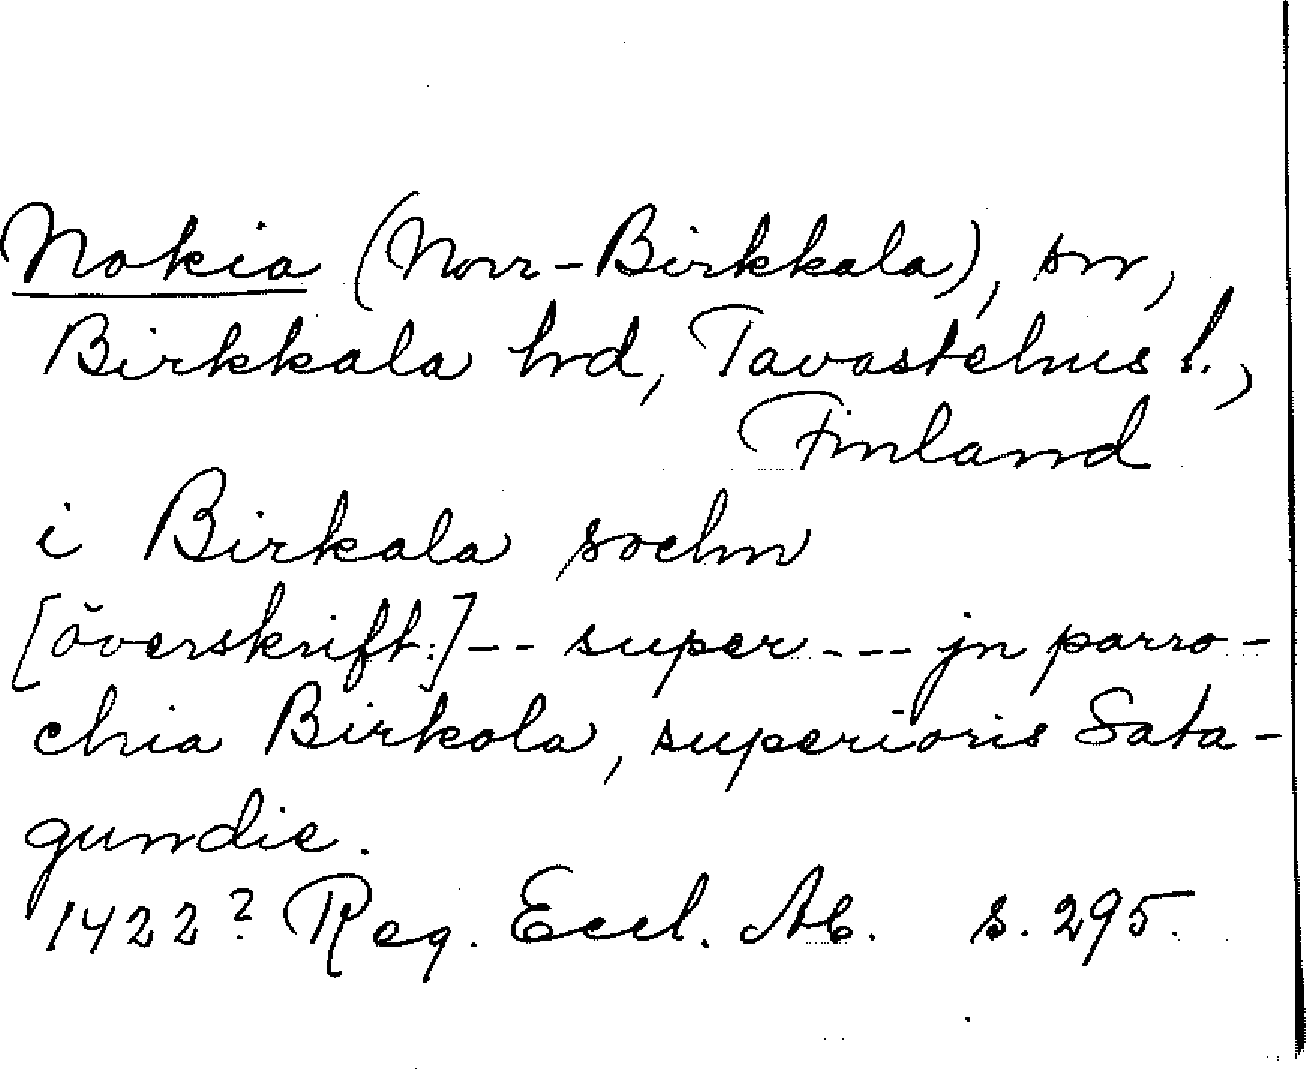 Nokia (Norr-Birkkala), sn,
Birkkala hd, Tavastehus l.,
Finland
i Birkala sochn
[överskrift:]-- super --- jn parro-
chia Birkola, superioris Sata-
gundie.
1422? Reg. Eccl. Ab. s. 295.